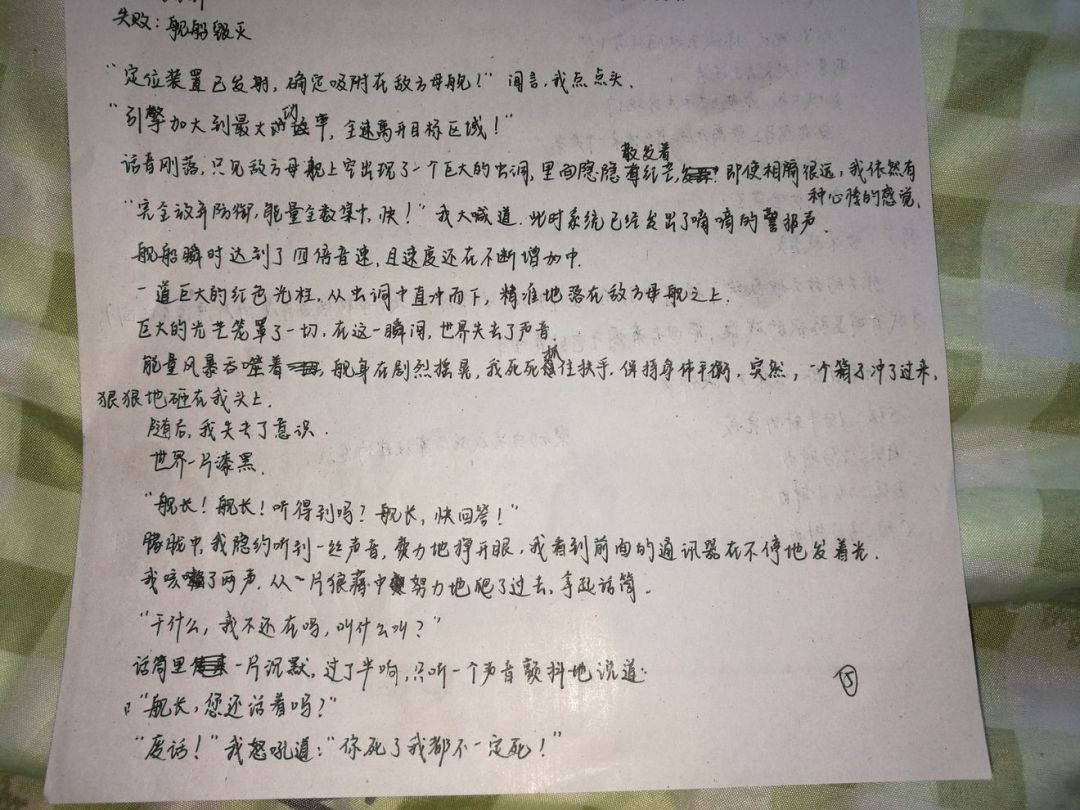 失败：舰船毁灭
“定位装置已发射，确定吸附在敌方母舰！”闻言，我点点头．
“引擎加大到最大的故率，全速离开目标区域！”
话音刚落，只见敌方母舰上空出现了一个巨大的虫洞，里面隐隐散发着红芒，即使相隔很远，我依然有
种心悸的感觉．
“完全放弃防御，能量全数集中，快！”我大喊道．此时系统已经发出了嘀嘀的警报声．
舰船瞬时达到了四倍音速，且速度还在不断增加中．
一道巨大的红色光柱，从虫洞中直冲而下，精准地落在敌方母舰之上．
巨大的光芒笼罩了一切，在这一瞬间，世界失去了声音．
能量风暴吞噬着，舰身在剧烈摇晃，我死死抓住扶手，保持身体平衡．突然，一个箱子冲了过来，
狠狠地砸在我头上．
随后，我失去了意识．
世界一片漆黑．
“舰长！舰长！听得到吗？舰长，快回答！”
朦胧中，我隐约听到一丝声音，费力地睁开眼，我看到前面的通讯器在不停地发着光．
我咳了两声．从一片狼藉中努力地爬了过去，拿起话筒．
“干什么，我不还在吗，叫什么叫？”
话筒里一片沉默，过了半响，只听一个声音颤抖地说道：
“舰长，您还活着吗？”
⑮
“废话！”我怒吼道：“你死了我都不一定死！”